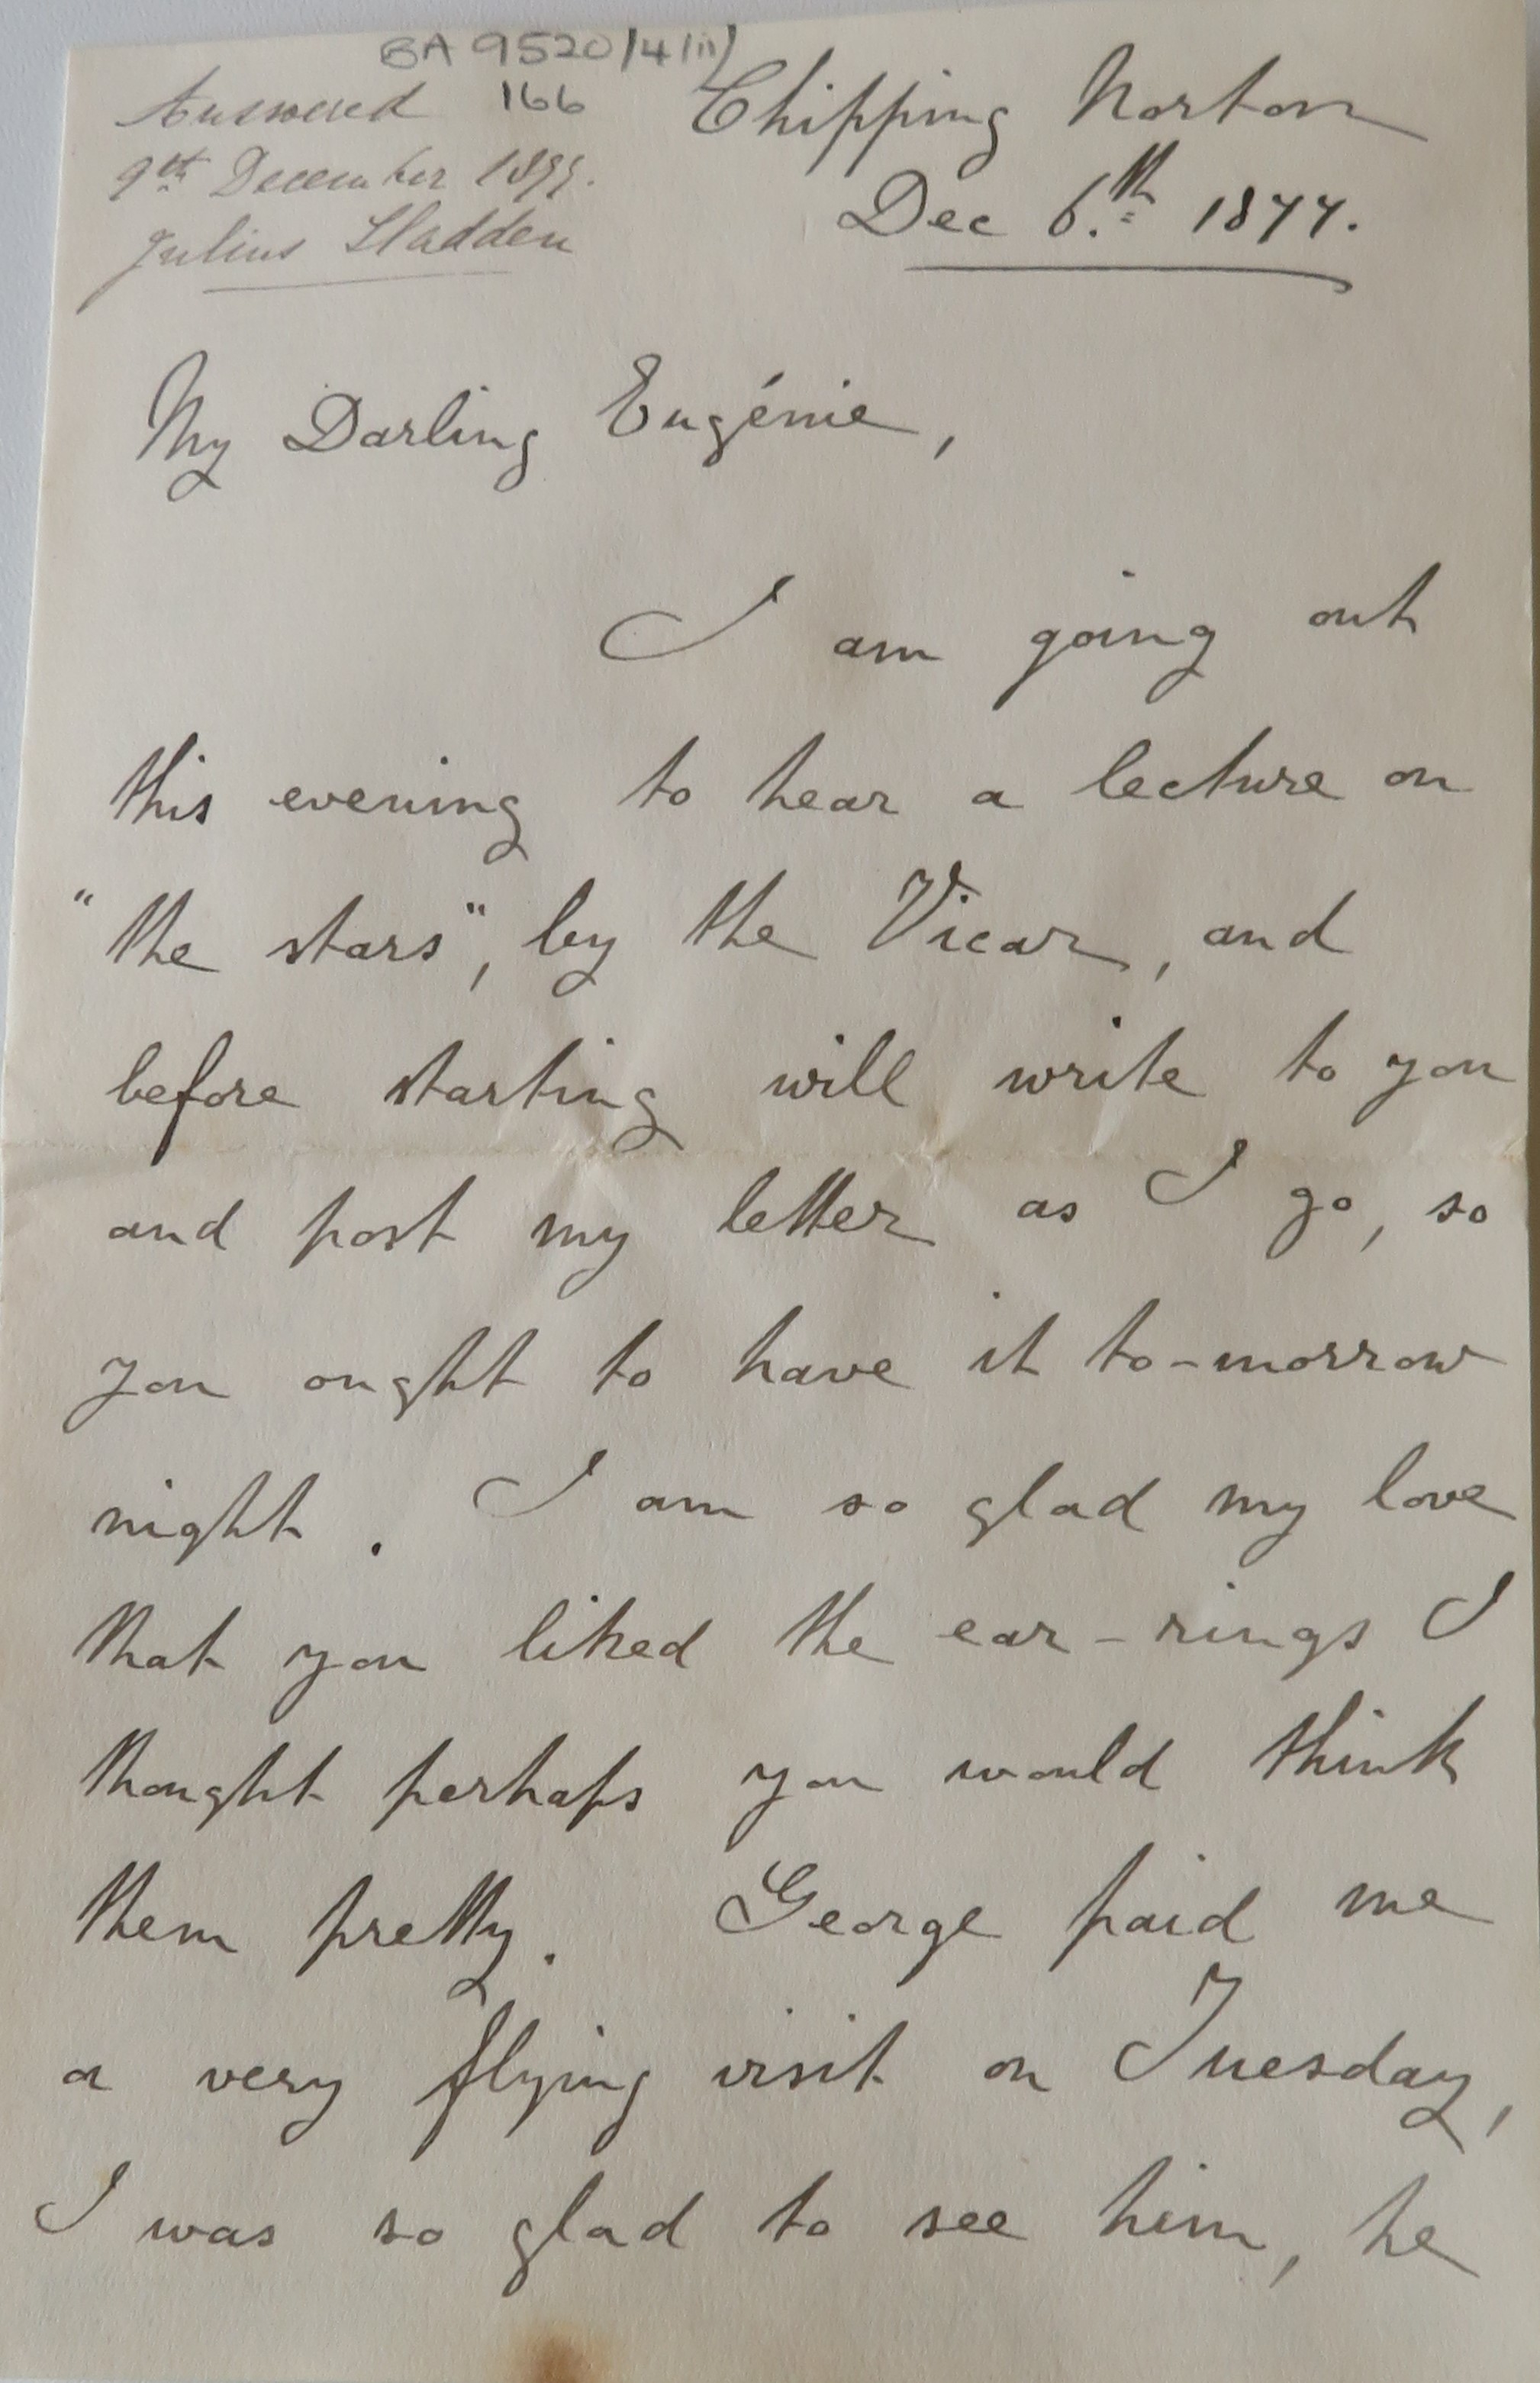 BA 9520/4/iii)
Answered 166
9th December 1877.
Julius Sladden
Chipping Norton
Dec 6.th 1877.
My Darling Eugénie,
I am going out
this evening to hear a lecture on
"the stars", by the Vicar, and
before starting will write to you
and post my letter as I go, so
you ought to have it to-morrow
night. I am so glad my love
that you liked the ear-rings I
thought perhaps you would think
them pretty. George paid me
a very flying visit on Tuesday,
I was so glad to see him, he